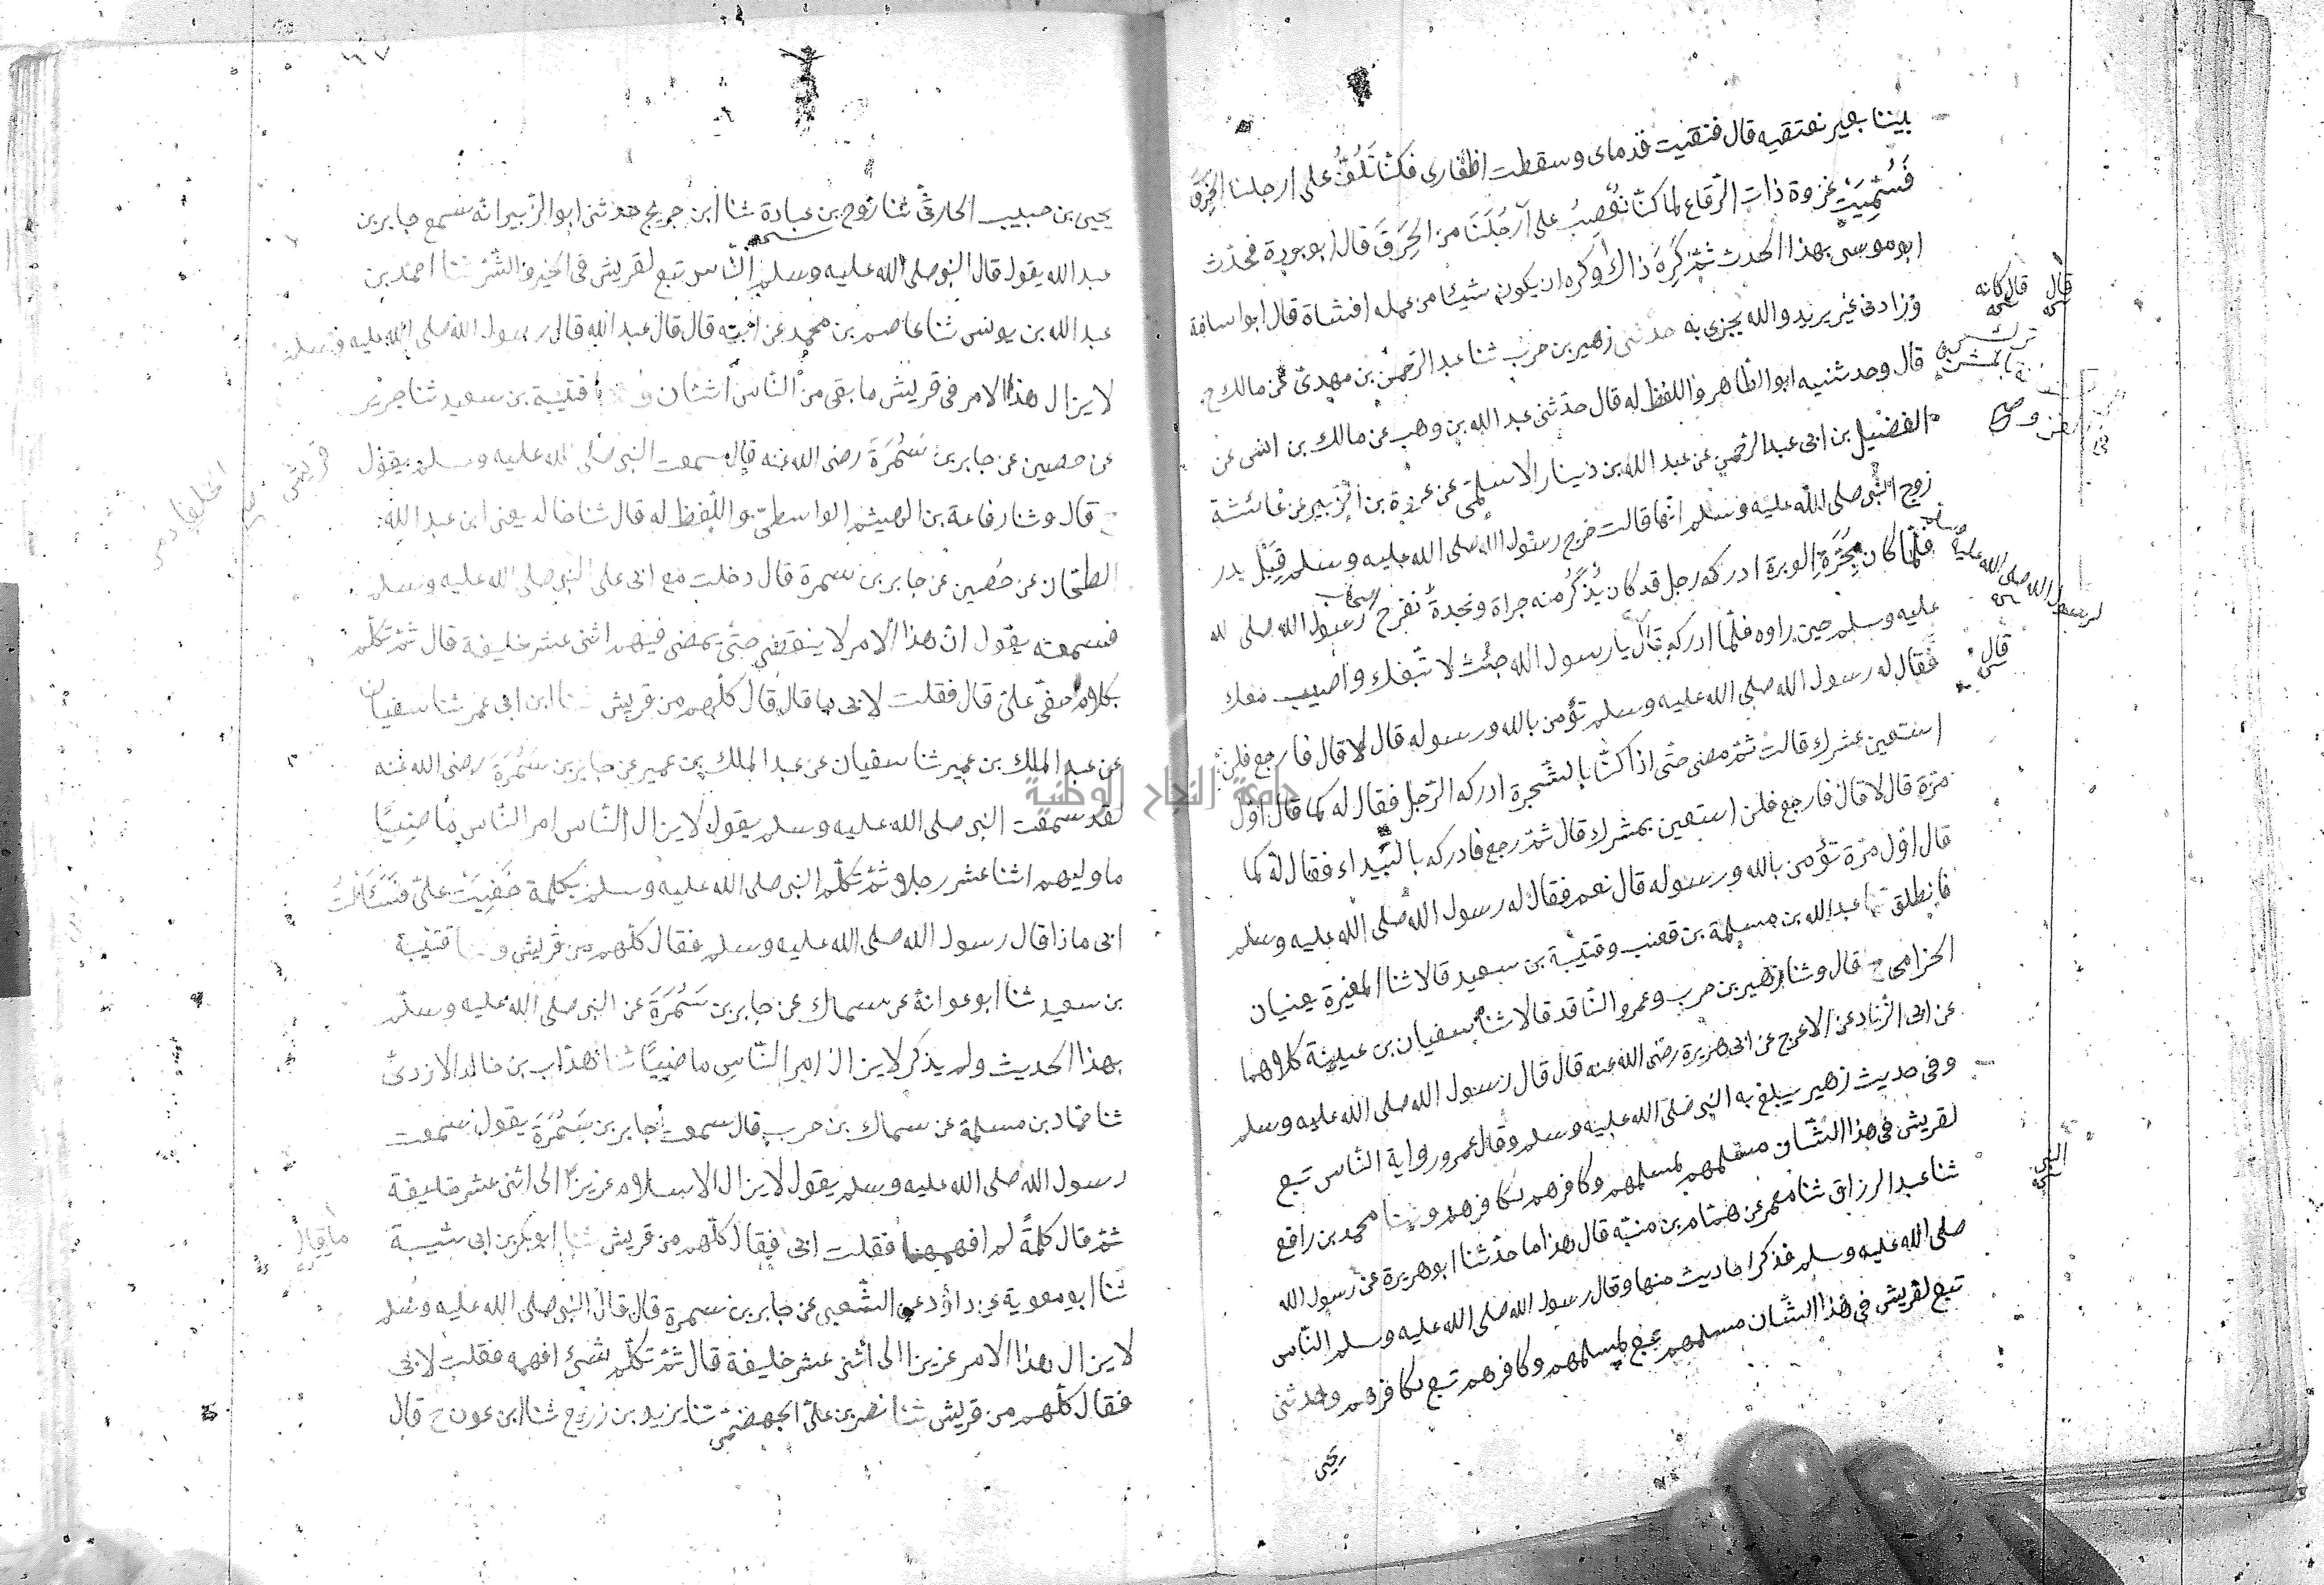 بيننا بعير نعتقبه قال فنقبت قدماى وسقطت اظفارى فكنّا نَلُفُّ على ارجلنا الخِرَقَ
فَسُمِّيَتْ غزوة ذات الرّقاع لما كنّا نُعَصِّبُ على اَرْجُلَنَا من الخِرَقَ قال ابو بردة فحدّث
ابو موسى بهذا الحدث ثمّ كَرِهَ ذاك وكره ان يكون شيئا من عمله افشاه قال ابو اسامة
وزادنى غير بريد والله يجزى به حدثنى زهير بن حرب ثنا عبد الرّحمن بن مهدىّ عن مالك ح
قال وحدثنيه ابو الطّاهر واللفظ له قال حدّثنى عبد الله بن وهب عن مالك بن انس عن
الفضيل بن ابى عبد الرّحمن عن عبد الله بن دينار الاسلمىّ عن عروة بن الزّبير عن عائشة
زوج النّبى صلى الله عليه وسلم انّها قالت خرج رسول الله صلى الله عليه وسلم قِبَلَ بدر
فلمّا كان بِحَرَّةِ الوبرة ادركه رجل قد كان يُذْكَرُ منه جراة ونجدةٌ ففرح اصحاب رسول الله صلى الله
عليه وسلم حين راوه فلمّا ادركه قال يا رسول الله جئت لا تّبعك واصيب معك
فقال له رسول الله صلى الله عليه وسلم تؤمن بالله ورسوله قال لا قال فارجع فلن
استعين بمشرك قالت ثمّ مضى حتّى اذا كنّا بالشّجرة ادركه الرّجل فقال له كما قال اوّل
مرّة قال لا قال فارجع فلن استعين بمشرك قال ثمّ رجع فادركه بالبَيْداء فقال له كما
قال اوّل مرّة تؤمن بالله ورسوله قال نعم فقال له رسول الله صلى الله عليه وسلم
فانطلق ثنا عبد الله بن مسلمة بن قعنب وقتيبة بن سعيد قالا ثنا المغيرة يعنيان
الحزامى ح قال وثنا زهير بن حرب وعمرو النّاقد قالا ثنا سفيان بن عيينة كلاهما
عن ابى الزّناد عن الاعرج عن ابى هريرة رضى الله عنه قال قال رسول الله صلى الله عليه وسلم
وفى حديث زهير يبلغ به النبى صلى الله عليه وسلم وقال عمرو رواية النّاس تبع
لقريش فى هذا الشّان مسلمهم لمسلمهم وكافرهم لكافرهم وثنا محمد بن رافع
ثنا عبد الرزاق ثنا معمر عن همّام بن منبّه قال هذا ما حدّثنا ابو هريرة عن رسول الله
صلى الله عليه وسلم فذكر احاديث منها وقال رسول الله صلى الله عليه وسلم النّاس
تبع لقريش فى هذا الشّان مسلمهم تبع لمسلمهم وكافرهم تبع لكافرهم وحدثنى
يحيى
قال كانه
قال
لرسول الله صلى الله عليه وسلم
قال
النبى
يحيى بن حبيب الحارثىّ ثنا رَوح بن عبادة ثنا ابن جريج حدثنى ابو الزّبير انه سمع جابر بن
عبد الله يقول قال النبى صلى الله عليه وسلم النّاس تبع لقريش فى الخير والشّرّ ثنا احمد بن
عبد الله بن يونس ثنا عاصم بن محمد عن ابيه قال قال عبد الله قال رسول الله صلى الله عليه وسلم
لا يزال هذا الامر فى قريش ما بقى من النّاس اثنان وثنا قتيبة بن سعيد ثنا جرير
عن حصين عن جابر بن سَمُرَةَ رضى الله عنه قال سمعت النبى صلى الله عليه وسلم يقول
ح قال وثنا رفاعة بن الهيثم الواسطىّ واللّفظ له قال ثنا خالد يعنى ابن عبد الله
الطحّان عن حُصين عن جابر بن سمرة قال دخلت مع ابى على النبى صلى الله عليه وسلم
فسمعته يقول انّ هذا الامر لا ينقضى حتّى يمضى فيهم اثنى عشر خليفة قال ثمّ تكلّم
بكلام خفى علىّ قال فقلت لابى ما قال قال كلّهم من قريش ثنا ابن ابى عمر ثنا سفيان
عن عبد الملك بن عمير ثنا سفيان عن عبد الملك بن عمير عن جابر بن سَمُرَةَ رضى الله عنه
لقد سمعت النبى صلى الله عليه وسلم يقول لا يزال النّاس امر النّاس ماضييًّا
ما وليهم اثنا عشر رجلا ثمّ تكلّم النبى صلى الله عليه وسلم بكلمة خَفِيَتْ علىّ فَسَألْتُ
ابى ماذا قال رسول الله صلى الله عليه وسلم فقال كلّهم من قريش وثنا قتيبة
بن سعيد ثنا ابو عوانة عن سماك عن جابر بن سَمُرَةَ عن النبى صلى الله عليه وسلم
بهذا الحديث ولم يذكر لا يزال امر النّاس ماضييًّا ثنا هدّاب بن خالد الازدىّ
ثنا حمّاد بن مسلمة عن سماك بن حرب قال سمعت جابر بن سَمُرَةَ يقول سمعت
رسول الله صلى الله عليه وسلم يقول لا يزال الاسلام عزيزا الى اثنى عشر خليفة
ثمّ قال كلمةً لم افهمها فقلت لابى فقال كلّهم من قريش ثنا ابو بكر بن ابى شيبة
ثنا ابو معوية عن داؤد عن الشّعبى عن جابر بن سمرة قال قال النبى صلى الله عليه وسلم
لا يزال هذا الامر عزيزا الى اثنى عشر خليفة قال ثمّ تكلّم بشئ افهمه فقلت لابى
فقال كلّهم من قريش ثنا نصر بن علىّ الجهضمىّ ثنا يزيد بن زريع ثنا ابن عون ح قال
قريش
ما قال
جامعة النجاح الوطنية